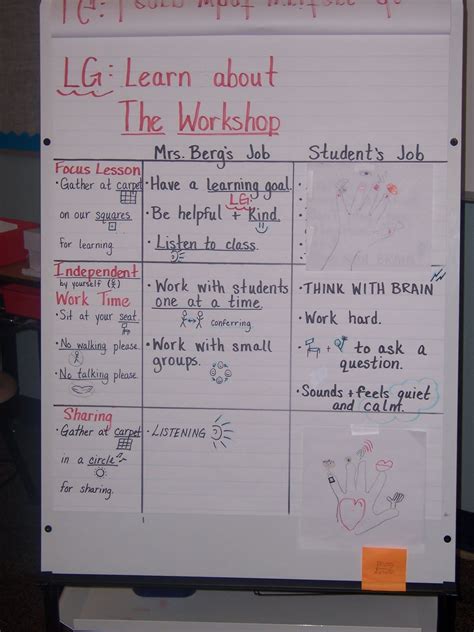 LG: Learn about
The Workshop
Mrs. Berg's Job
Student's Job
Focus Lesson
• Gather at carpet
on our squares
for learning.
• Have a learning goal.
LG:
• Be helpful + Kind.
• Listen to class.
Independent
by yourself
Work Time
• Sit at your seat.
• No walking please.
• No talking please.
• Work with students
one at a time.
conferring.
• Work with small
groups.
• THINK WITH BRAIN
• Work hard.
• + to ask a
question.
• Sounds + feels quiet
and calm.
Sharing
• Gather at carpet
in a circle
for sharing.
• LISTENING